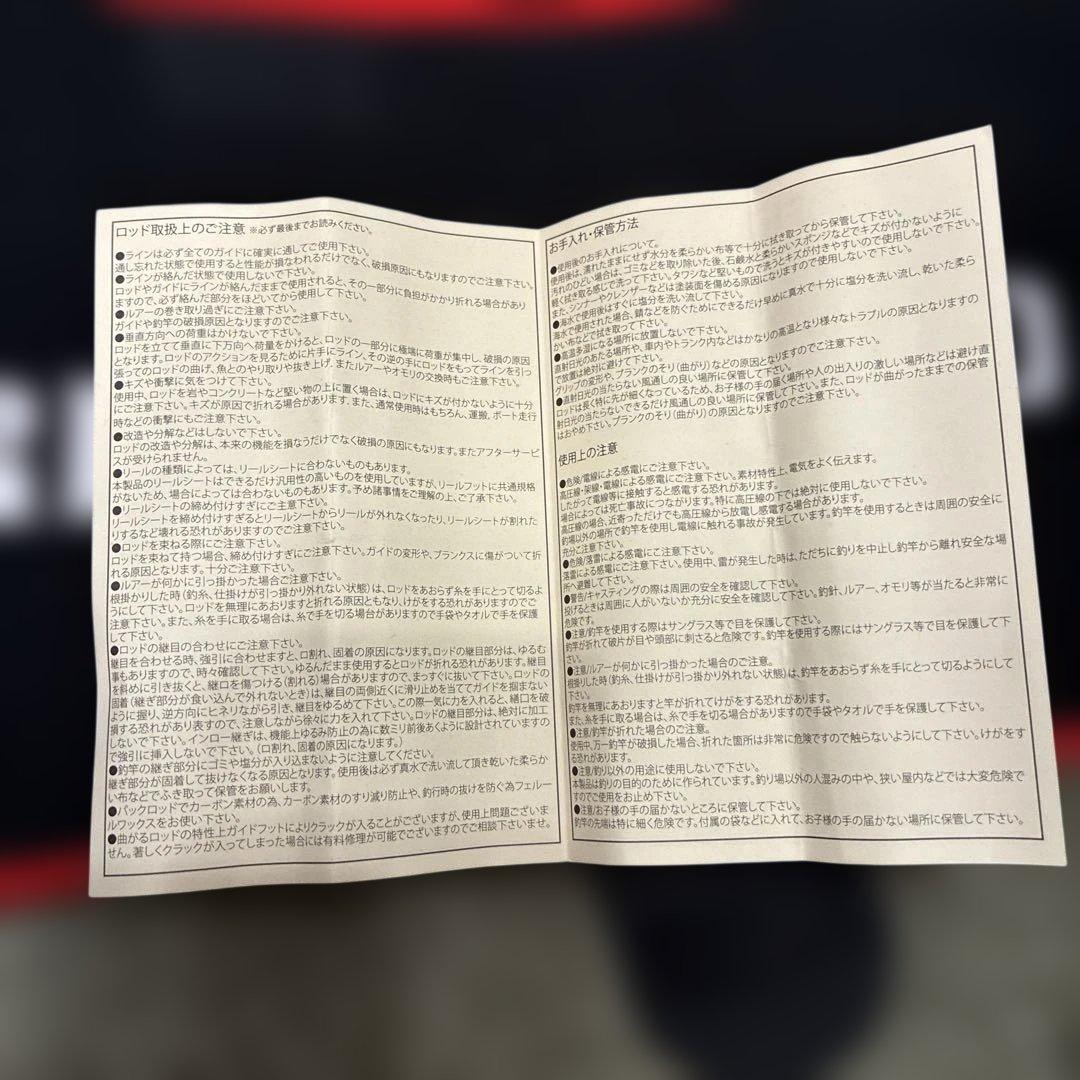 ロッド取扱上のご注意 ※必ず最後までお読みください。
●ラインは必ず全てのガイドに確実に通してご使用下さい。
通し忘れた状態で使用すると性能が損なわれるだけでなく、破損原因にもなりますのでご注意下さい。
●ラインが絡んだ状態で使用しないで下さい。
ロッドやガイドにラインが絡んだままで使用されると、その一部分に負担がかかり折れる場合があり
ますので、必ず絡んだ部分をほどいてから使用して下さい。
●ルアーの巻き取り過ぎにご注意下さい。
ガイドや釣竿の破損原因となりますのでご注意下さい。
●垂直方向への荷重はかけないで下さい。
ロッドを立てて垂直に下方向へ荷重をかけると、ロッドの一部分に極端に荷重が集中し、破損の原因
となります。ロッドのアクションを見るために片手にライン、その逆の手にロッドをもってラインを引っ
張ってのロッドの曲げ、魚とのやり取りや抜き上げ、またルアーやオモリの交換時もご注意下さい。
●キズや衝撃に気をつけて下さい。
使用中、ロッドを岩やコンクリートなど堅い物の上に置く場合は、ロッドにキズが付かないように十分
にご注意下さい。キズが原因で折れる場合があります、また、通常使用時はもちろん、運搬、ボート走行
時などの衝撃にもご注意下さい。
●改造や分解などはしないで下さい。
ロッドの改造や分解は、本来の機能を損なうだけでなく破損の原因にもなります。またアフターサービ
スが受けられません。
●リールの種類によっては、リールシートに合わないものもあります。
本製品のリールシートはできるだけ汎用性の高いものを使用していますが、リールフットに共通規格
がないため、場合によっては合わないものもあります。予め諸事情をご理解の上、ご了承下さい。
●リールシートの締め付けすぎにご注意下さい。
リールシートを締め付けすぎるとリールシートからリールが外れなくなったり、リールシートが割れた
りするなど壊れる恐れがありますのでご注意下さい。
●ロッドを束ねる際にご注意下さい。
ロッドを束ねて持つ場合、締め付けすぎにご注意下さい。ガイドの変形や、ブランクスに傷がついて折
れる原因となります。十分ご注意下さい。
●ルアーが何かに引っ掛かった場合ご注意下さい。
根掛かりした時(釣糸、仕掛けが引っ掛かり外れない状態)は、ロッドをあおらず糸を手にとって切るよ
うにして下さい。ロッドを無理にあおりますと折れる原因ともなり、けがをする恐れがありますのでご
注意下さい。また、糸を手に取る場合は、糸で手を切る場合がありますので手袋やタオルで手を保護
して下さい。
●ロッドの継目の合わせにご注意下さい。
継目を合わせる時、強引に合わせますと、口割れ、固着の原因になります。ロッドの継目部分は、ゆるむ
事もありますので、時々確認して下さい。ゆるんだまま使用するとロッドが折れる恐れがあります。継目
を斜めに引き抜くと、継口を傷つける(割れる)場合がありますので、まっすぐに抜いて下さい。ロッドの
固着(継ぎ部分が食い込んで外れないとき)は、継目の両側近くに滑り止めを当ててガイドを掴まない
ように握り、逆方向にヒネリながら引き、継目をゆるめて下さい。この際一気に力を入れると、繕口を破
損する恐れがあり表すので、注意しながら徐々に力を入れて下さい。ロッドの継目部分は、絶対に加工
しないで下さい。インロー継ぎは、機能上ゆるみ防止の為に数ミリ前後あくように設計されていますの
で強引に挿入しないで下さい。(口割れ、固着の原因になります。)
●釣竿の継ぎ部分にゴミや塩分が入り込まないように注意してください。
継ぎ部分が固着して抜けなくなる原因となります。使用後は必ず真水で洗い流して頂き乾いた柔らか
い布などでふき取って保管をお願いします。
●パックロッドでカーボン素材の為、カーボン素材のすり減り防止や、釣行時の抜けを防ぐ為フェルー
ルワックスをお使い下さい。
●曲がるロッドの特性上ガイドフットによりクラックが入ることがございますが、使用上問題ございま
せん。著しくクラックが入ってしまった場合には有料修理が可能でございますのでご相談下さいませ。
お手入れ・保管方法
●使用後のお手入れについて。
使用後は、濡れたままにせず水分を柔らかい布等で十分に拭き取ってから保管して下さい。
汚れのひどい場合は、ゴミなどを取り除いた後、石鹸水と柔らかいスポンジなどでキズが付かないように
軽く拭き取る感じで洗って下さい。タワシなど堅いもので洗うとキズが付きやすいので使用しないで下さい。
また、シンナーやクレンザーなどは塗装面を傷める原因になりますので使用しないで下さい。
●海水で使用後はすぐに塩分を洗い流して下さい。
海水で使用された場合、錆などを防ぐためにできるだけ早めに真水で十分に塩分を洗い流し、乾いた柔ら
かい布などで拭き取って下さい。
●高温多湿になる場所に放置しないで下さい。
直射日光のあたる場所や、車内やトランク内などはかなりの高温となり様々なトラブルの原因となりますの
で放置は絶対に避けて下さい。
グリップの変形や、ブランクのそり(曲がり)などの原因となりますのでご注意下さい。
●直射日光の当たらない風通しの良い場所に保管して下さい。
ロッドは長く特に先が細くなっているため、お子様の手の届く場所や人の出入りの激しい場所などは避け直
射日光の当たらないできるだけ風通しの良い場所に保管して下さい。また、ロッドが曲がったままでの保管
はおやめ下さい。ブランクのそり(曲がり)の原因となりますのでご注意下さい。
使用上の注意
●危険/電線による感電にご注意下さい。
高圧線・架線・電線による感電にご注意下さい。素材特性上、電気をよく伝えます。
したがって電線等に接触すると感電する恐れがあります。
場合によっては死亡事故につながります。特に高圧線の下では絶対に使用しないで下さい。
高圧線の場合、近寄っただけでも高圧線から放電し感電する場合があります。
釣場以外の場所で釣竿を使用し電線に触れる事故が発生しています。釣竿を使用するときは周囲の安全に
充分ご注意下さい。
●危険/落雷による感電にご注意下さい。
落雷による感電にご注意下さい。使用中、雷が発生した時は、ただちに釣りを中止し釣竿から離れ安全な場
所へ避難して下さい。
●警告/キャスティングの際は周囲の安全を確認して下さい。
投げるときは周囲に人がいないか充分に安全を確認して下さい。釣針、ルアー、オモリ等が当たると非常に
危険です。
●注意/釣竿を使用する際はサングラス等で目を保護して下さい。
釣竿が折れて破片が目や頭部に刺さると危険です。釣竿を使用する際にはサングラス等で目を保護して下
さい。
●注意/ルアーが何かに引っ掛かった場合のご注意。
根掛りした時(釣糸、仕掛けが引っ掛かり外れない状態)は、釣竿をあおらず糸を手にとって切るようにして
下さい。
釣竿を無理にあおりますと竿が折れてけがをする恐れがあります。
また、糸を手に取る場合は、糸で手を切る場合がありますので手袋やタオルで手を保護して下さい。
●注意/釣竿が折れた場合のご注意。
使用中、万一釣竿が破損した場合、折れた箇所は非常に危険ですので触らないようにして下さい。けがをす
る恐れがあります。
●注意/釣り以外の用途に使用しないで下さい。
本製品は釣りの目的のために作られています。釣り場以外の人混みの中や、狭い屋内などでは大変危険で
すのでご使用をお止め下さい。
●注意/お子様の手の届かないところに保管して下さい。
釣竿の先端は特に細く危険です。付属の袋などに入れて、お子様の手の届かない場所に保管して下さい。